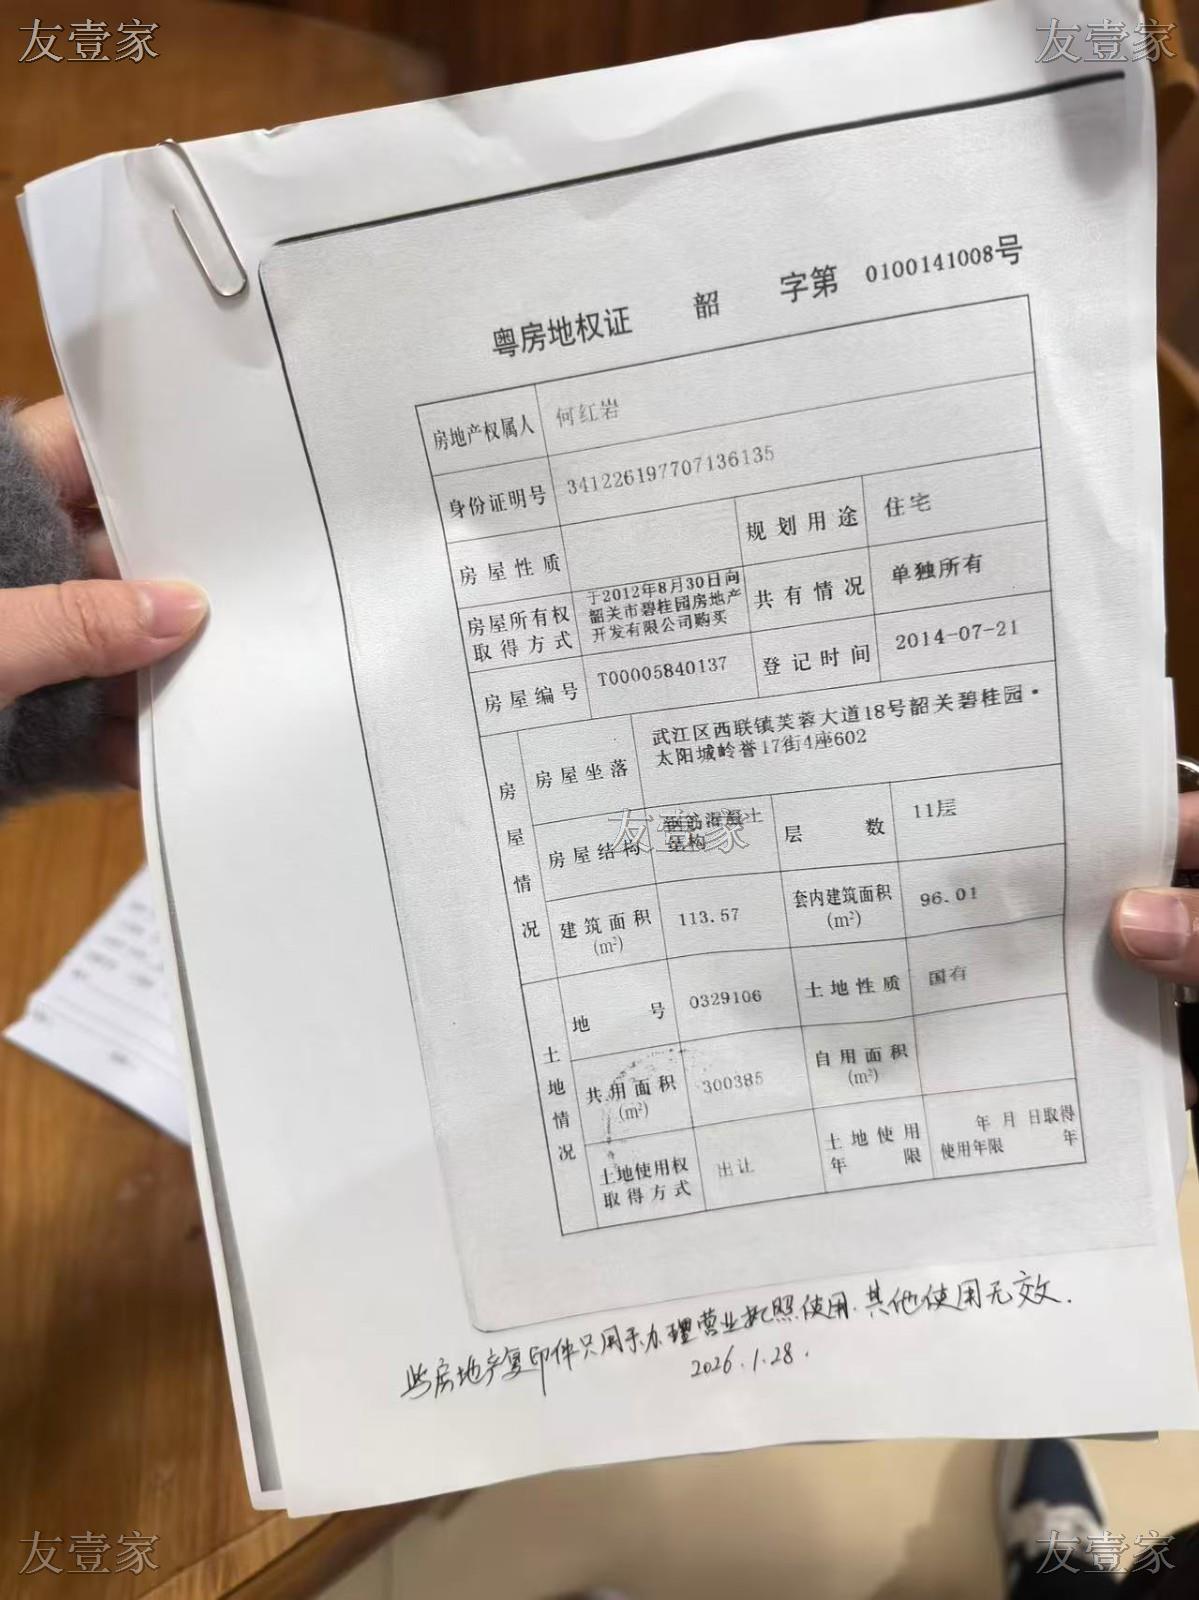 友壹家 友壹家
粤房地权证 韶 字第 0100141008号
房地产权属人 何红岩
身份证明号 341226197707136135
房屋性质 规划用途 住宅
房屋所有权取得方式 于2012年8月30日向
韶关市碧桂园房地产
开发有限公司购买
共有情况 单独所有
房屋编号 T00005840137 登记时间 2014-07-21
房屋情况
房屋坐落 武江区西联镇芙蓉大道18号韶关碧桂园·
太阳城岭誉17街4座602
房屋结构 钢筋混凝土
结构
层数 11层
友壹家
建筑面积(m²) 113.57 套内建筑面积(m²) 96.01
土地情况
地号 0329106 土地性质 国有
共用面积(m²) 300385 自用面积(m²)
土地使用权取得方式 出让 土地使用年限 年 月 日取得
使用年限 年
此房地产复印件只用于办理营业执照使用.其他使用无效.
2026.1.28.
友壹家 友壹家